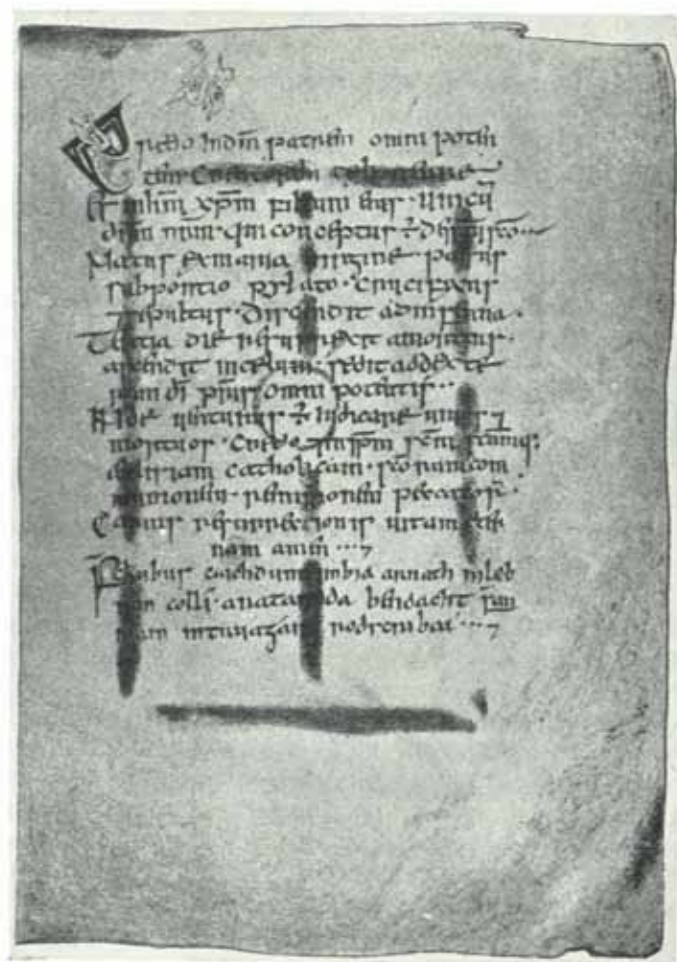 Credo in dm̄ patrem omni potē
tem Creatorem celi et terre
Et in ihm̄ xp̄m filium eius · unicū
dn̄m nrm̄ · qui conceptus ÷ de sp̄u sc̄o
Natus ex maria uirgine passus
sub pontio pylato · crucifixus
et sepultus · discendit ad inferna ·
Tertia die resurrexit a mortuis ·
ascendit in celum · sedit ad dexte
ram dī pr̄is omni potētis ···
Inde uenturus ÷ iudicare uiuos ⁊
mortuos · Credo et in sp̄m sc̄m
catholicam · com
munionem · remissionem peccatorū ·
Carnis resurrectionis uitam eter
nam amen ··· ⁊
Forchubus caichduini imbia arrath in leb
ran colli · aratardda bendacht
main in truagain rodscribai ··· ⁊